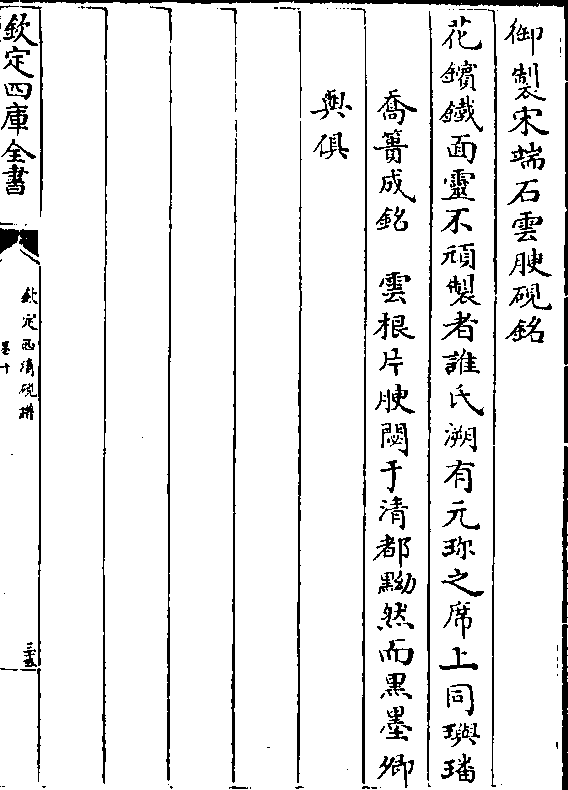 御製宋端石雲腴硯銘
花鑌鐵面靈不頑製者誰氏溯有元珎之席上同璵璠
喬簣成銘　雲根片腴閟于清都黝然而黑墨卿
與俱
欽定四庫全書
欽定西清硯譜
卷十
三十五